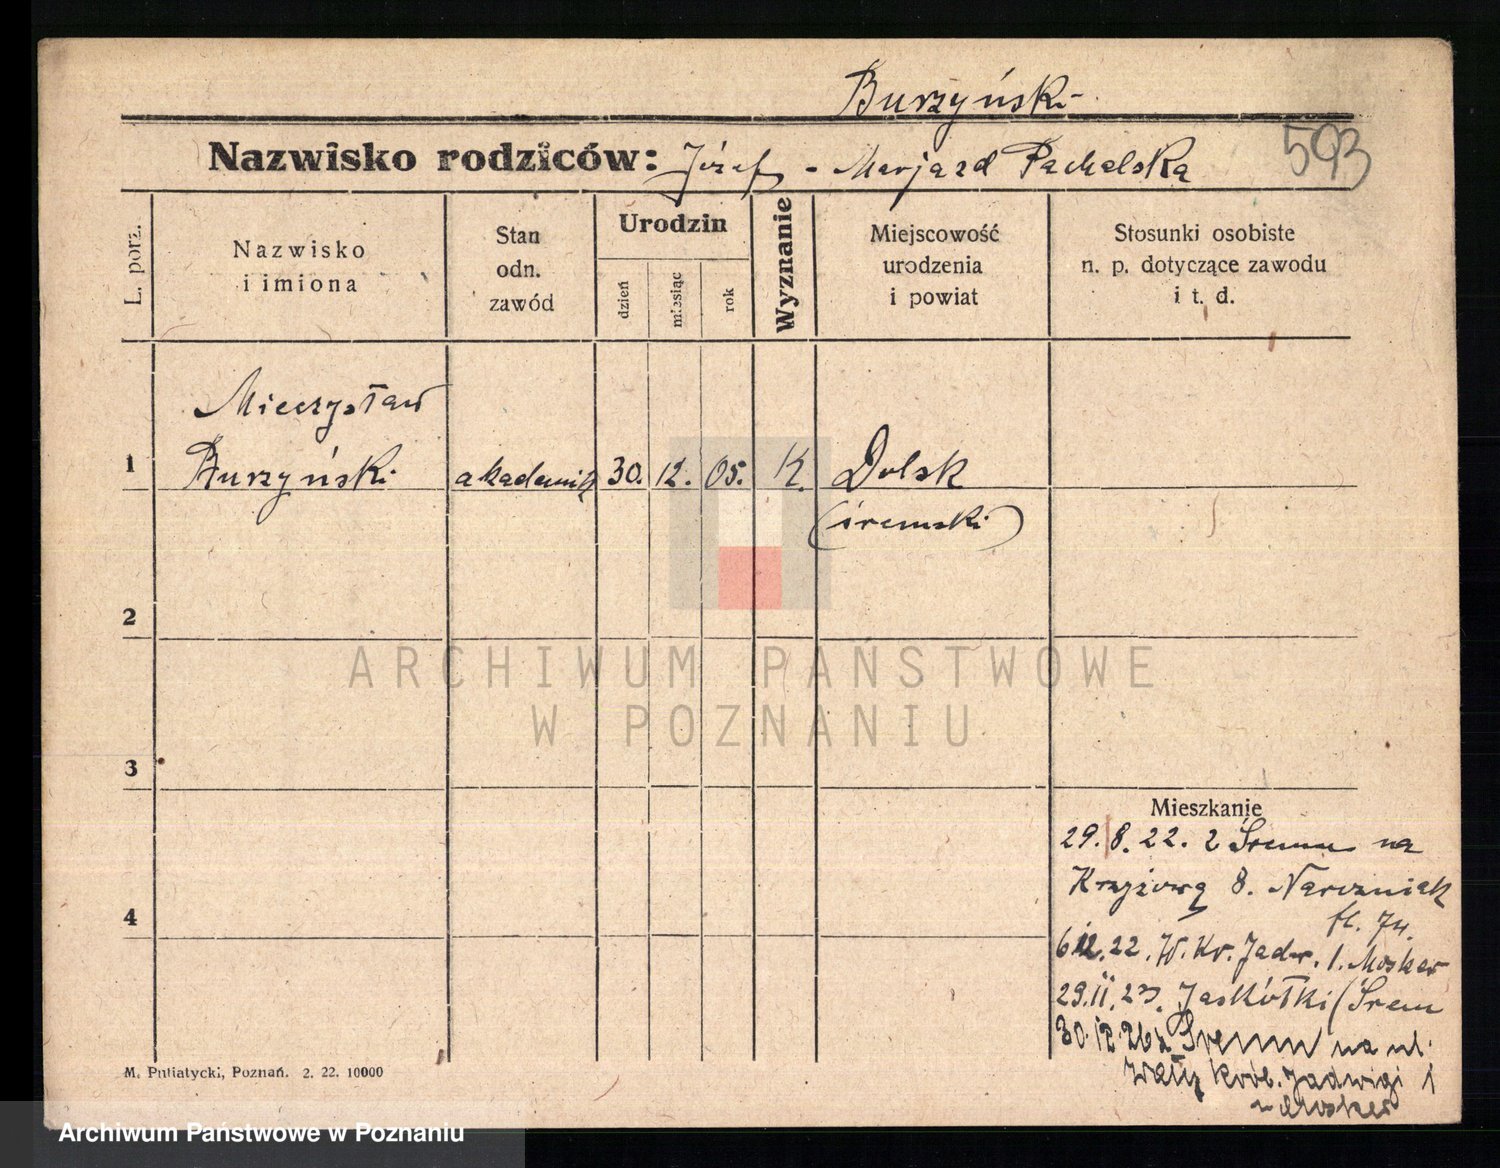 Burzyński
593
Nazwisko rodziców: Józef - Marja zd Pachalska
L. porz.
Nazwisko
i imiona
Stan
odn.
zawód
Urodzin
dzień
miesiąc
rok
Wyznanie
Miejscowość
urodzenia
i powiat
Stosunki osobiste
n. p. dotyczące zawodu
i t. d.
Mieczysław
1 Burzyński akademik 30. 12. 05. K. Dolsk
(śremski)
2
ARCHIWUM PAŃSTWOWE
W POZNANIU
3
Mieszkanie
29. 8. 22. z Śremu na
Krzyżową 8. Narożniak
4
6 12. 22. W. Kr. Jadw. 1.
29. II. 23. Jaskółki (Śrem
30. 12 26 z Śremu na ul.
Wały Król. Jadwigi 1
M. Putiatycki, Poznań. 2. 22. 10000
Archiwum Państwowe w Poznaniu